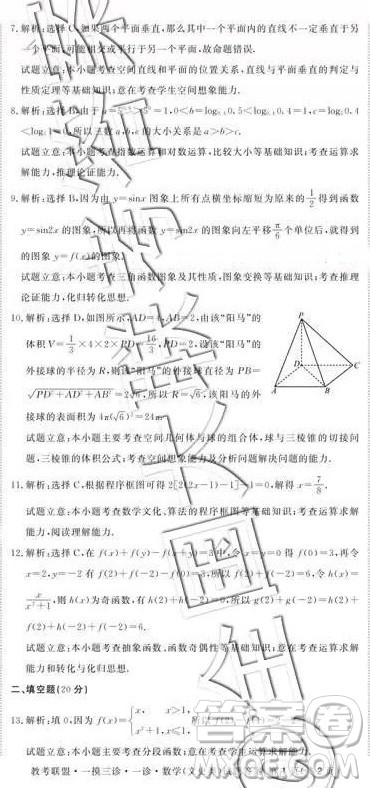 7.解析:选择C,如果两个平面垂直,那么其中一个平面内的直线不一定垂直于另
一个平面,可能相交或平行于另一个平面,故命题错误.
试题立意:本小题考查空间直线和平面的位置关系,直线与平面垂直的判定与
性质定理等基础知识;意在考查学生空间想象能力.
8.解析:选择B,由于
=1,c=log
所以三数a,b,c的大小关系是a>b>c.
试题立意:本小题考查指数运算和对数运算,比较大小等基础知识;考查运算求
解能力,推理论证能力.
9.解析:选择B,因为由y=sinx图象上所有点横坐标缩短为原来的1/2得到函数
y=sin2x的图象,所以再将函数y=sin2x的图象向左平移π/6个单位后,就得到
的图象y=f(x)的图象.
试题立意:本小题考查三角函数图象及其性质,图象变换等基础知识;考查推理
论证能力,化归转化思想.
10.解析:选择D,如图所示,AD=4,AB=2,由该“阳马”的
体积V=1/3×4×2×PD=16/3,PD=2,设该“阳马”的
外接球的半径为R,则该“阳马”的外接球直径为PB=
√PD²+AD²+AB²=2√6,所以R=√6,该阳马的外
接球的表面积为4π(√6)²=24π.
P
D
C
A
B
试题立意:本小题主要考查空间几何体与球的组合体,球与三棱锥的切接问
题,三棱锥的体积公式;考查空间想象能力及分析问题解决问题的能力.
11.解析:选择C,根据程序框图可得2[2(2x-1)-1]-1=0,解得x=7/8.
试题立意:本小题考查数学文化、算法的程序框图等基础知识;考查运算求解
能力,阅读理解能力.
12.解析:选择C,在f(x)+f(y)-f(x+y)=3中,令x=y=0得f(0)=3,再令
x=2,y=-2有f(2)+f(-2)-f(0)=3,所以f(2)+f(-2)=6,令h(x)=
x/x²+1,则h(x)为奇函数,有h(2)+h(-2)=0,所以g(2)+g(-2)=h(2)+
f(2)+h(-2)+f(-2)=6.
试题立意:本小题考查抽象函数、函数奇偶性等基础知识;意在考查运算求解
能力及转化与化归思想.
二、填空题(20分)
13.解析:填0,因为f(x)={x, x>1,
x²+1,x≤1,
试题立意:本小题主要考查分段函数;意在考查学生运算求解能力.
教考联盟·一摸三诊·一诊·数学(文史类)